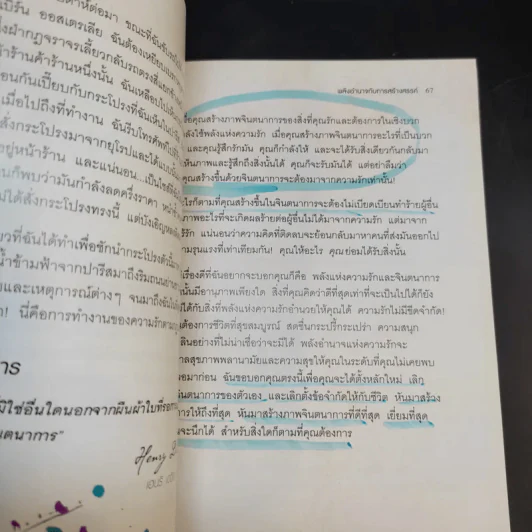 าห์ต่อมา ขณะที่ฉันขับรถไป
เบิร์น ออสเตรเลีย ฉันต้องเหยียบเบรก
ฝ่าฝืนกฎจราจรเลี้ยวกลับรถตรงสี่แยก
ร้านค้าร้านหนึ่งนั้น ฉันเหลือบไปเห็น
อนกันเปี๊ยบกับกระโปรงที่ฉันเห็นใน
เมื่อไปถึงที่ทำงาน ฉันรีบโทรศัพท์
สั่งกระโปรงมาจากยุโรปและได้แบบ
อยู่หน้าร้าน และแน่นอน...เป็นไซส์
ก็พบว่ามันกำลังลดครึ่งราคา
ได้สั่งกระโปรงทรงนี้ แต่บังเอิญ
ที่ฉันได้ทำเพื่อชักนำกระโปรงตัวนี้มา
น้ำข้ามฟ้าจากปารีสมาถึงริมถนน
และเหตุการณ์ต่างๆ จนมาถึงฉัน
! นี่คือการทำงานของความรักตาม
การ
มิใช่อื่นใดนอกจากผืนผ้าใบที่
นตนาการ"
Henry
พลังอำนาจกับการสร้างสรรค์ 67
คุณสร้างภาพจินตนาการของสิ่งที่คุณรักและต้องการในเชิงบวก
ลังใช้พลังแห่งความรัก เมื่อคุณสร้างภาพจินตนาการอะไรที่เป็นบวก
และคุณรู้สึกรักมัน คุณก็กำลังให้ และจะได้รับสิ่งเดียวกันกลับมา
เห็นภาพและรู้สึกถึงสิ่งนั้นได้ คุณก็จะรับมันได้ แต่อย่าลืมว่า
คุณสร้างขึ้นด้วยจินตนาการจะต้องมาจากความรักเท่านั้น!
ะไรก็ตามที่คุณสร้างขึ้นในจินตนาการจะต้องไม่เบียดเบียนทำร้ายผู้อื่น
ภาพอะไรที่จะเกิดผลร้ายต่อผู้อื่นไม่ได้มาจากความรัก แต่มาจาก
รัก แน่นอนว่าความคิดที่ติดลบจะย้อนกลับมาหาคนที่ส่งมันออกไป
วามรุนแรงที่เท่าเทียมกัน! คุณให้อะไร คุณย่อมได้รับสิ่งนั้น
เรื่องดีที่ฉันอยากจะบอกคุณก็คือ พลังแห่งความรักและจินตนาการ
นั้นมีอานุภาพเพียงใด สิ่งที่คุณคิดว่าดีที่สุดเท่าที่จะเป็นไปได้ก็ยัง
ได้กับสิ่งที่พลังแห่งความรักอำนวยให้คุณได้ ความรักไม่มีขีดจำกัด!
ต้องการชีวิตที่สุขสมบูรณ์ สดชื่นกระปรี้กระเปร่า ความสนุก
ลินอย่างที่ไม่น่าเชื่อว่าจะมีได้ พลังอำนาจแห่งความรักจะ
าลสุขภาพพลานามัยและความสุขให้คุณในระดับที่คุณไม่เคยพบ
อมาก่อน ฉันขอบอกคุณตรงนี้เพื่อคุณจะได้ตั้งหลักใหม่ เลิก
นตนาการของตัวเอง และเลิกตั้งข้อจำกัดให้กับชีวิต หันมาสร้าง
การให้ถึงที่สุด หันมาสร้างภาพจินตนาการที่ดีที่สุด เยี่ยมที่สุด
จะนึกได้ สำหรับสิ่งใดก็ตามที่คุณต้องการ